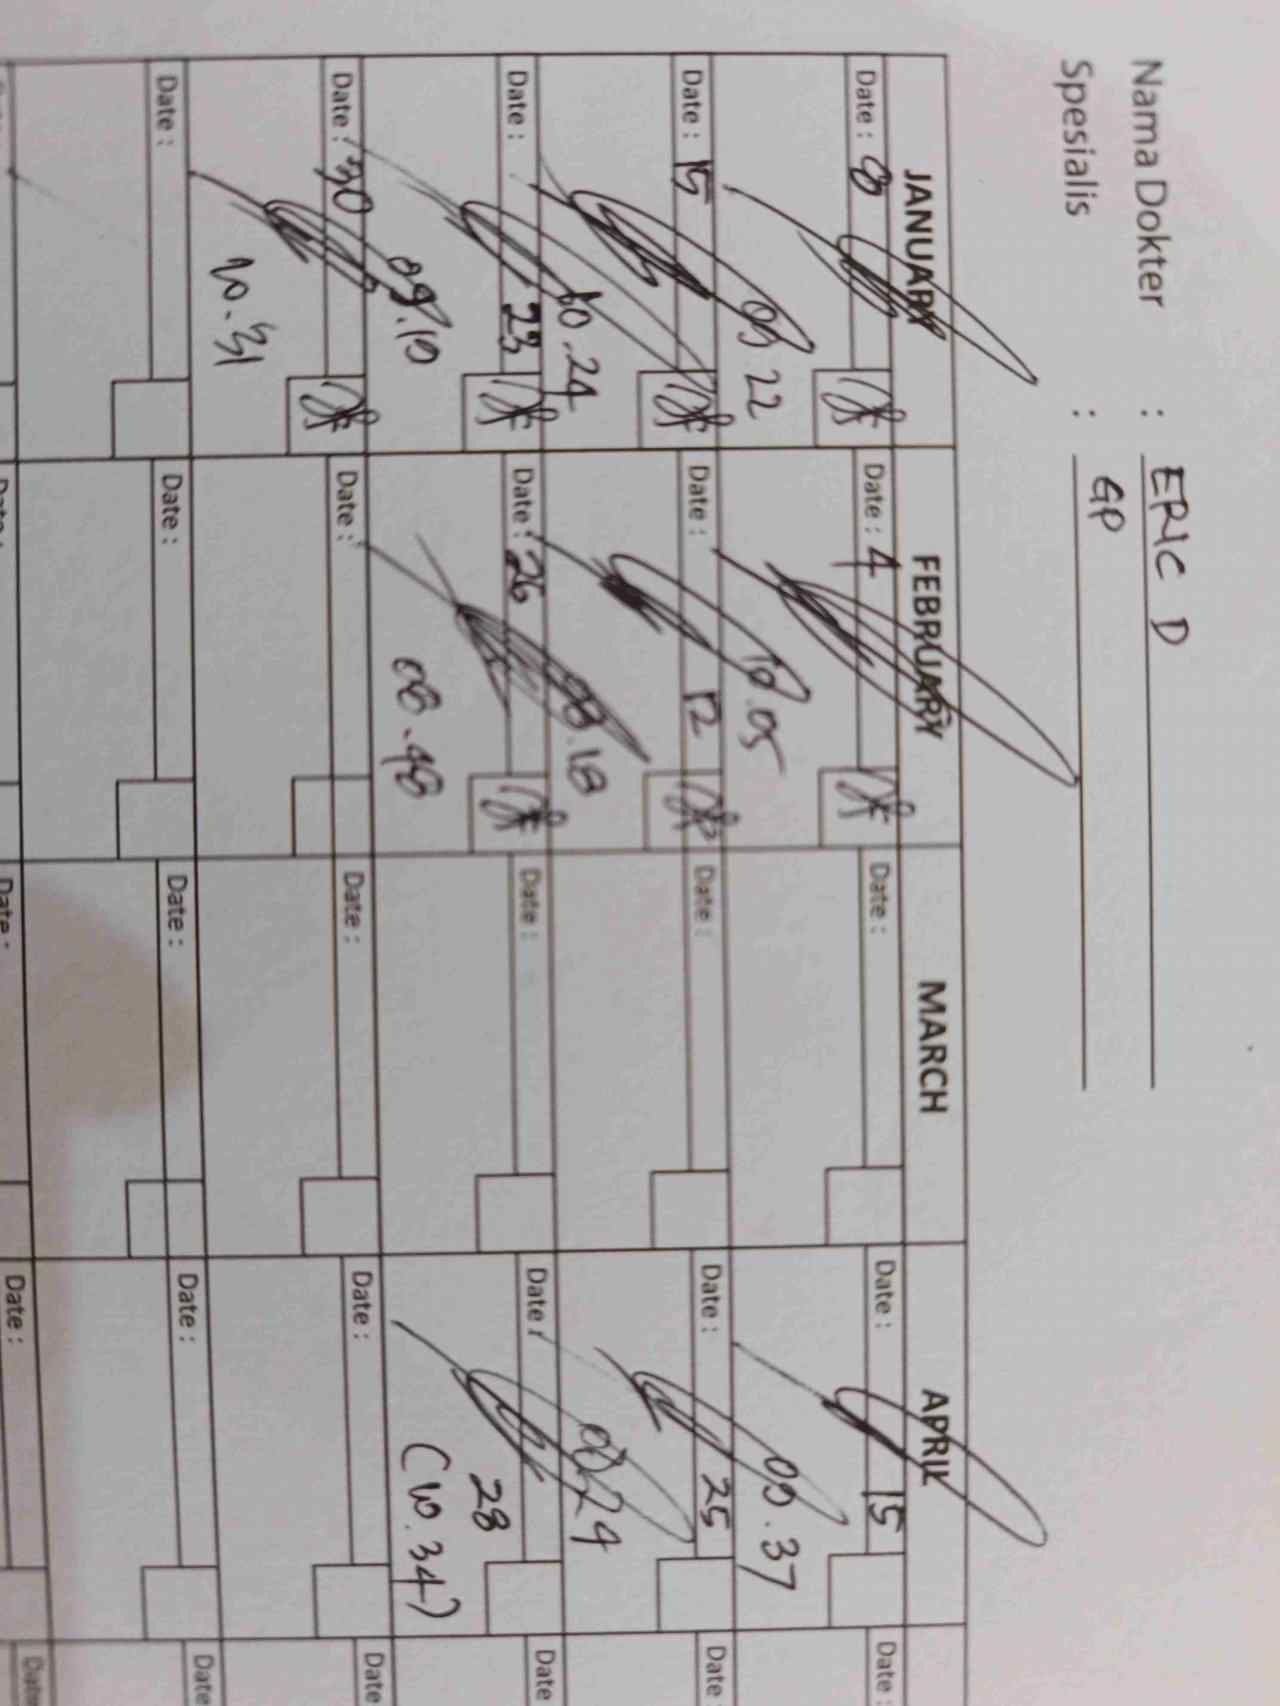 Nama Dokter : ERIC D
Spesialis : GP
JANUARY FEBRUARY MARCH APRIL
Date : 8 Date : 4 Date : Date : 15 Date :
09.22 10.05 09.37
Date : 15 Date : 12 Date : Date : 25 Date
10.24 08.18 24
Date : 23 Date : 26 Date : Date : 28 Date
09.10 08.48 (10.34)
Date : 30 Date : Date : Date : Date
10.31
Date : Date : Date : Date : Date
Date : Date : Date